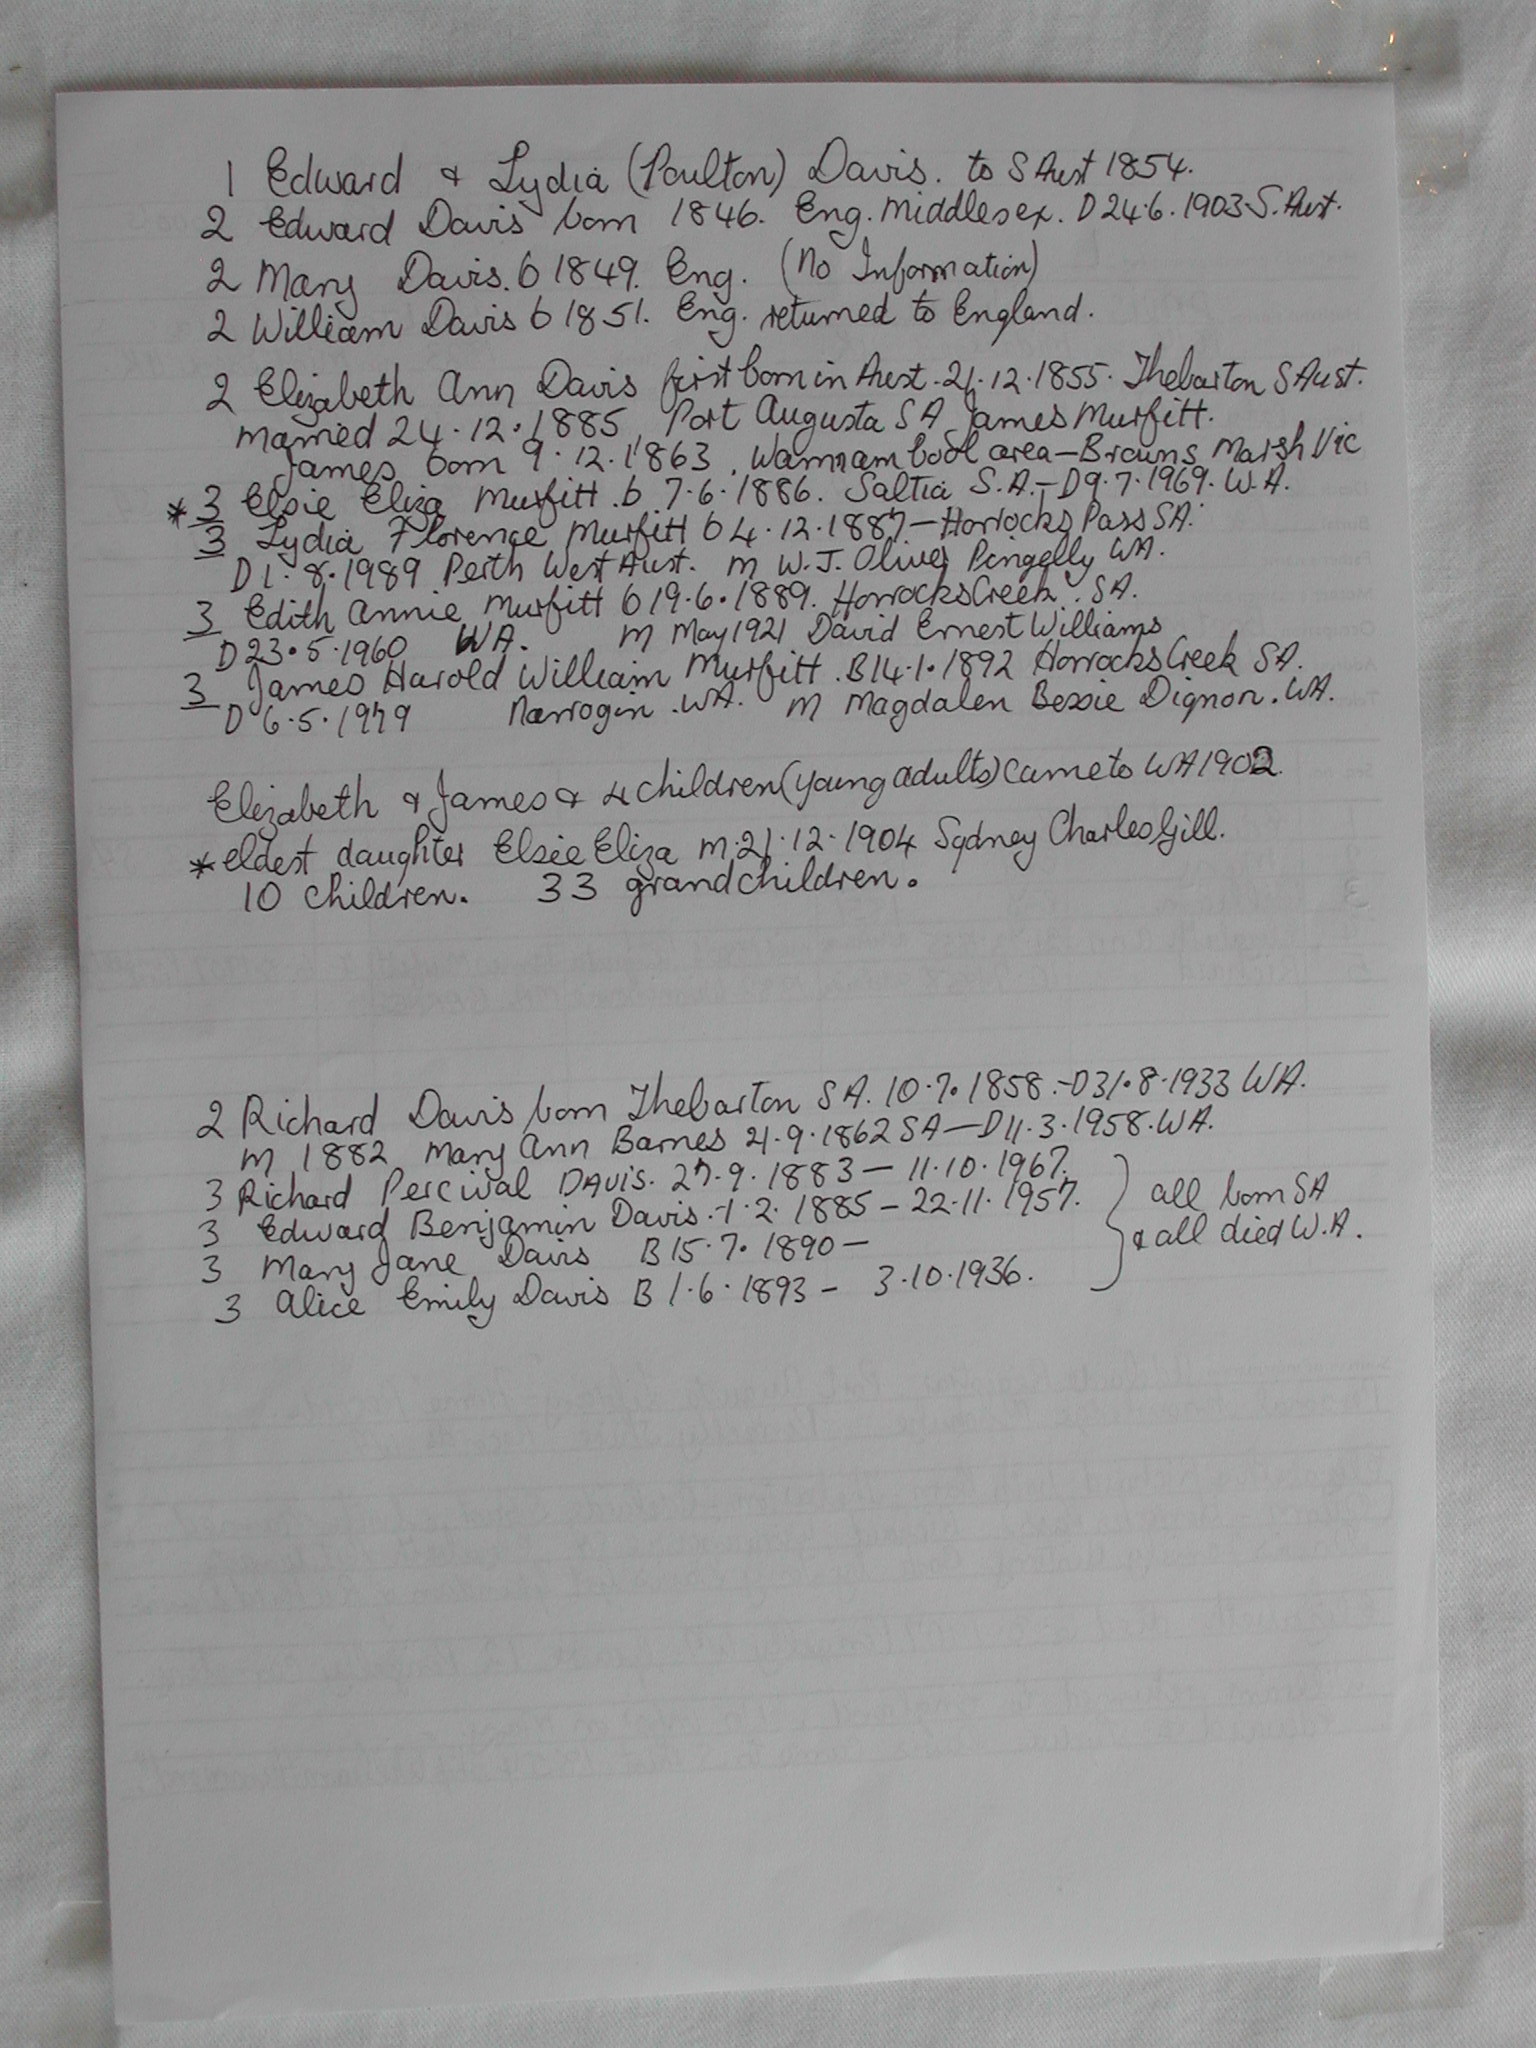 1 Edward & Lydia (Poulton) Davis. to S Aust 1854.
2 Edward Davis born 1846. Eng. Middlesex. D 24.6.1903.S.Aust.
2 Mary Davis. b 1849. Eng. (No Information)
2 William Davis b 1851. Eng. returned to England.
2 Elizabeth Ann Davis first born in Aust. 21.12.1855. Thebarton S Aust.
married 24.12.1885 Port Augusta SA James Murfitt.
James born 9.12.1863. Warrnambool area - Browns Marsh Vic
* 3 Elsie Eliza Murfitt .b 7.6.1886. Saltia S.A. - D 9.7.1969. W.A.
3 Lydia Florence Murfitt b 4.12.1887 - Horrocks Pass SA.
D 1.8.1989 Perth West Aust. m W.J. Oliver Pingelly WA.
3 Edith Annie Murfitt b 19.6.1889. Horrocks Creek. SA.
D 23.5.1960 WA. m May 1921 David Ernest Williams
3 James Harold William Murfitt. B 14.1.1892 Horrocks Creek SA.
D 6.5.1979 Narrogin. WA. m Magdalen Bessie Dignon. WA.
Elizabeth & James & 4 children (young adults) came to WA 1902.
* eldest daughter Elsie Eliza m. 21.12.1904 Sydney Charles Gill.
10 children. 33 grandchildren.
2 Richard Davis born Thebarton SA. 10.7.1858. - D 31.8.1933 WA.
m 1882 Mary Ann Barnes 21.9.1862 SA - D 11.3.1958. WA.
3 Richard Percival DAVIS. 27.9.1883 - 11.10.1967.
3 Edward Benjamin Davis. 1.2.1885 - 22.11.1957. all born SA
3 Mary Jane Davis B 15.7.1890 - & all died W.A.
3 Alice Emily Davis B 1.6.1893 - 3.10.1936.